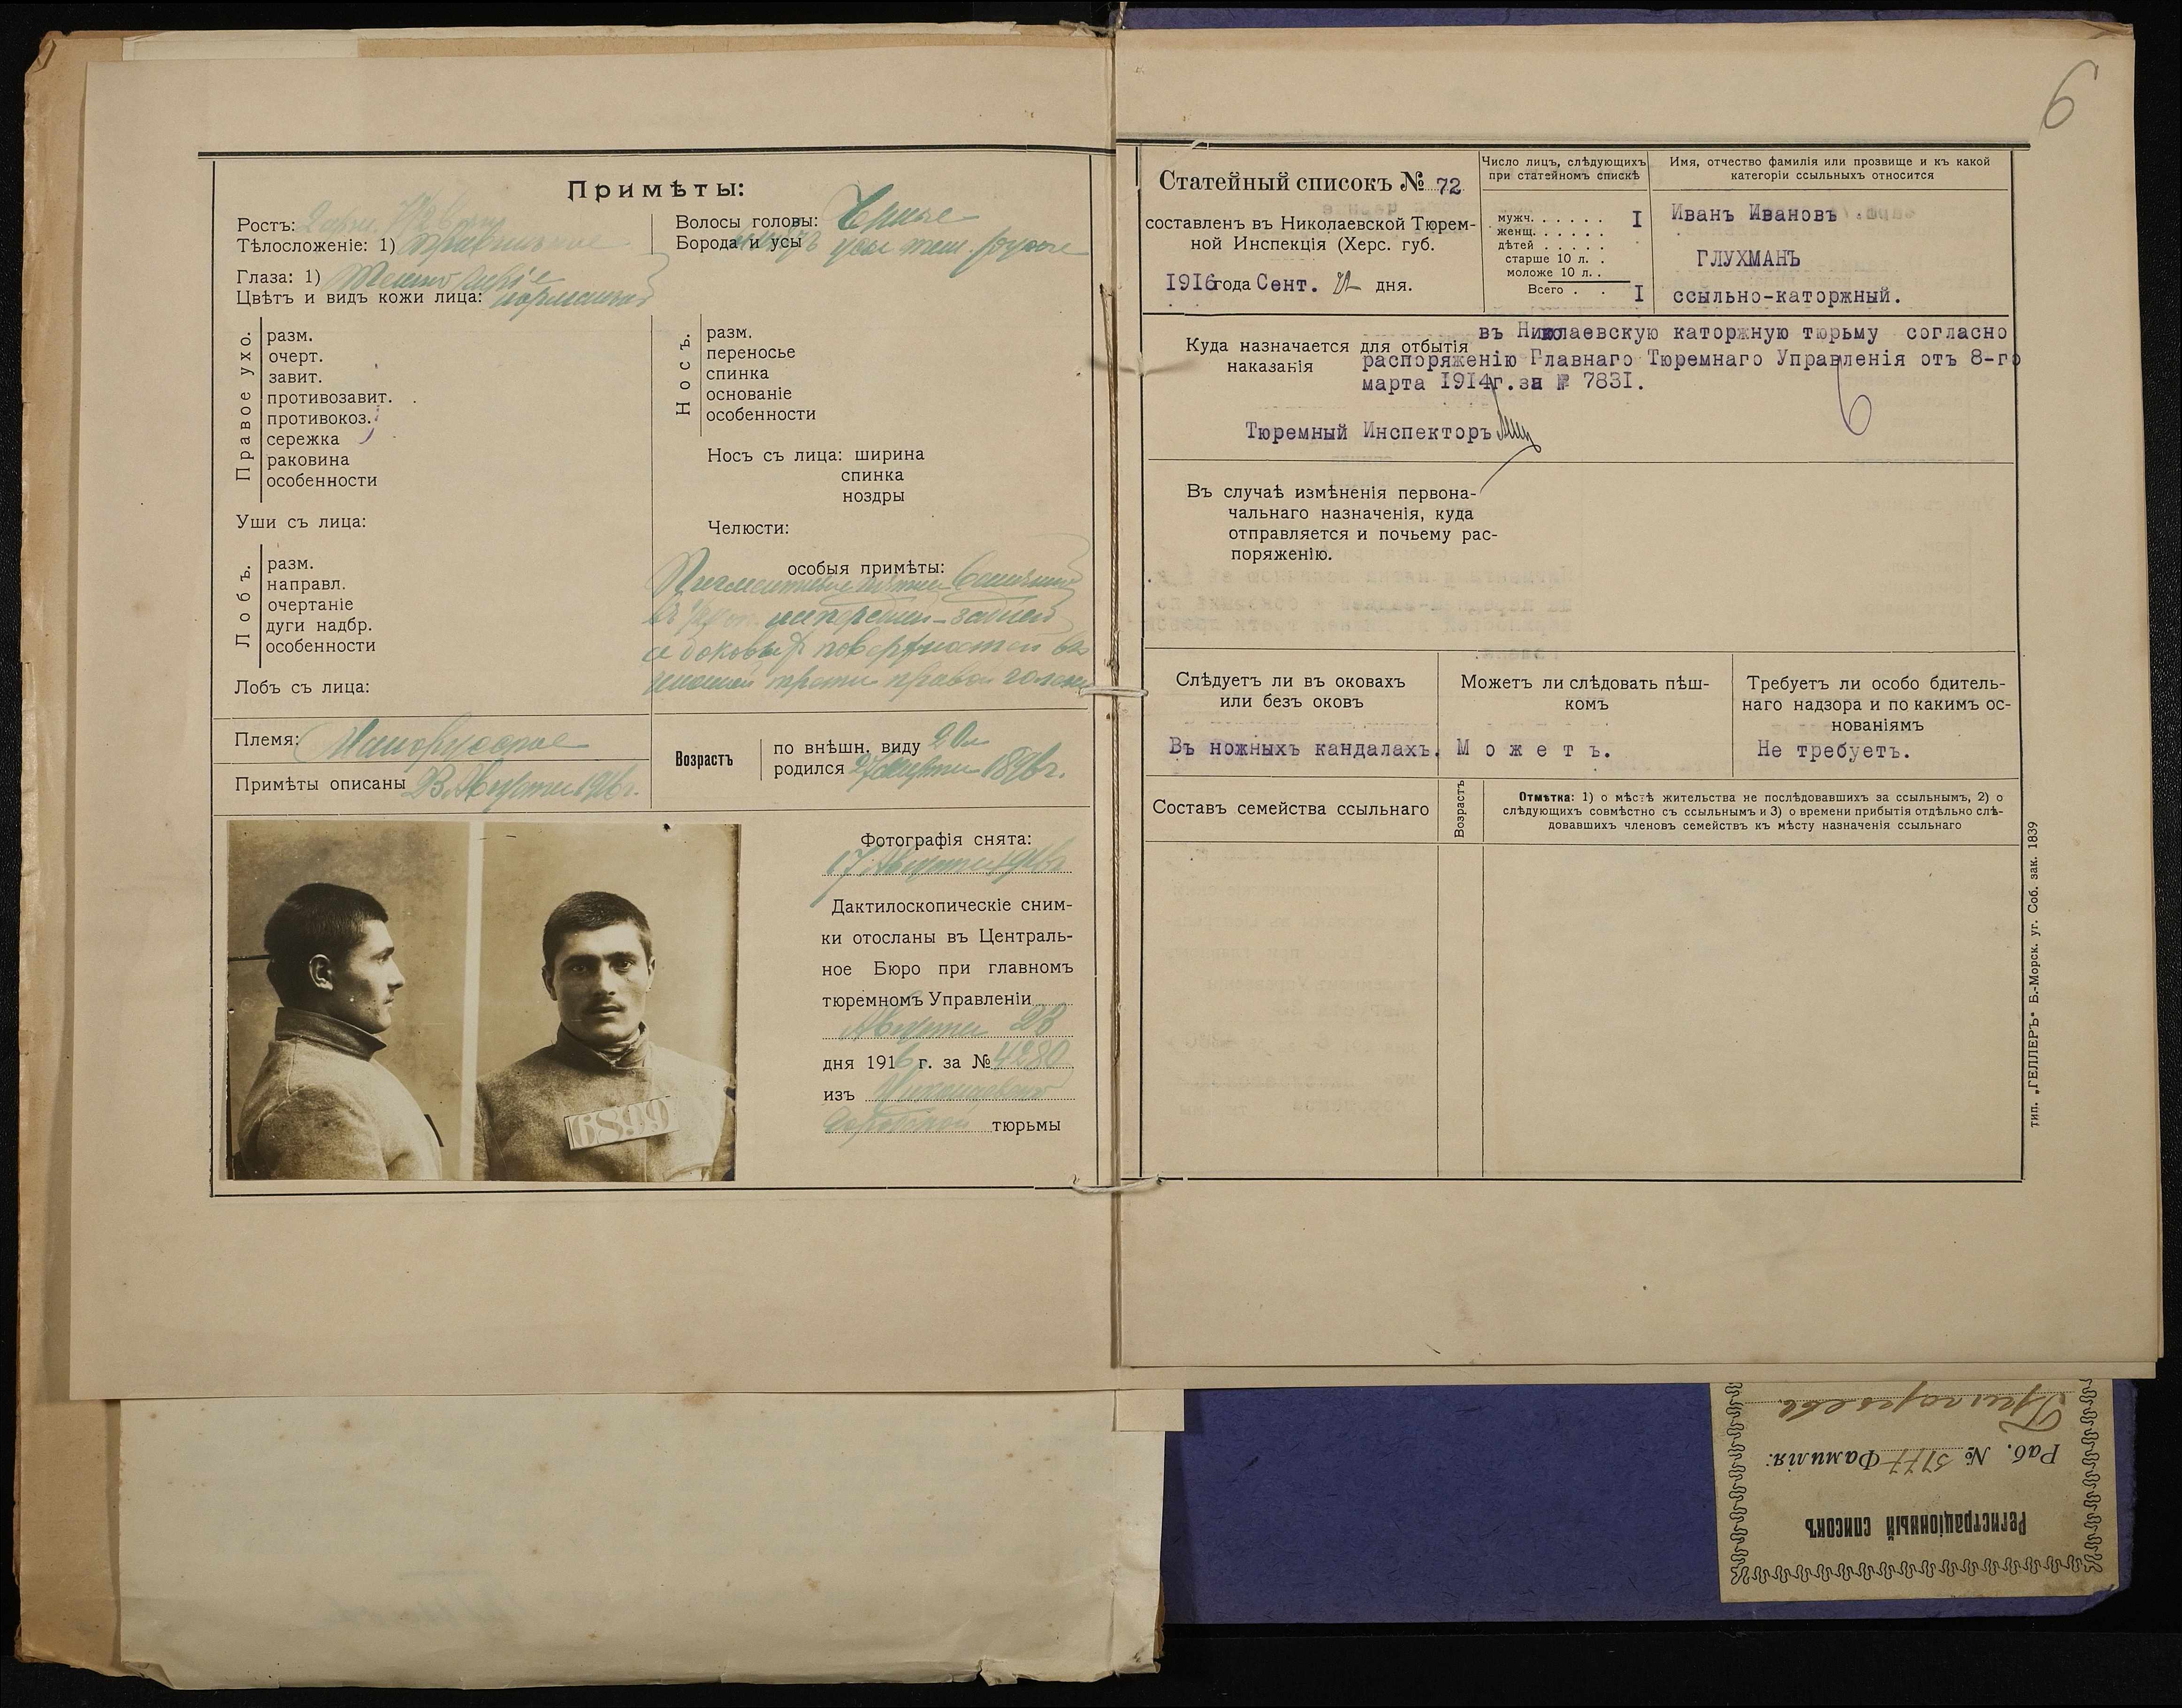 6
Примѣты:
Ростъ: 2 арш. 7 1/2 верш
Тѣлосложеніе: 1) правильное
Глаза: 1) Темно карiе
Цвѣтъ и видъ кожи лица: нормальный
Волосы головы: Черные
Борода и усы усы тем. русые
Правое ухо.
разм.
очерт.
завит.
противозавит.
противокоз.
сережка
раковина
особенности
Уши съ лица:
Лобъ.
разм.
направл.
очертаніе
дуги надбр.
особенности
Лобъ съ лица:
Носъ.
разм.
переносье
спинка
основаніе
особенности
Носъ съ лица: ширина
спинка
ноздры
Челюсти:
особыя примѣты:
Пигментныя пятна величиной
въ на передней-задней
и боковых поверхностей въ
нижней трети правой голени
Племя: Малорусское
Примѣты описаны 23 Августа 1916 г.
Возрастъ
по внѣшн. виду 20 л
родился 27 1896 г.
Фотографія снята:
17 Августа 1916 г.
Дактилоскопическіе сним-
ки отосланы въ Централь-
ное Бюро при главномъ
тюремномъ Управленіи
Августа 23
дня 1916 г. за № 4280
изъ Николаевской
тюрьмы
6899
Статейный списокъ № 72
составленъ въ Николаевской Тюрем-
ной Инспекція (Херс. губ.
1916 года Сент. дня.
Число лицъ, слѣдующихъ
при статейномъ спискѣ
мужч. . . . . . . I
женщ. . . . . .
дѣтей . . . . .
старше 10 л. .
моложе 10 л. .
Всего . . I
Имя, отчество фамилія или прозвище и къ какой
категоріи ссыльныхъ относится
Иванъ Ивановъ
ГЛУХМАНЪ
ссыльно-каторжный.
Куда назначается для отбытія
наказанія
въ Николаевскую каторжную тюрьму согласно
распоряженію Главнаго Тюремнаго Управленія отъ 8-го
марта 1914г. за № 7831.
Тюремный Инспекторъ
Въ случаѣ измѣненія первона-
чальнаго назначенія, куда
отправляется и почьему рас-
поряженію.
Слѣдуетъ ли въ оковахъ
или безъ оковъ
Въ ножныхъ кандалахъ.
Можетъ ли слѣдовать пѣш-
комъ
Можетъ.
Требуетъ ли особо бдитель-
наго надзора и по какимъ ос-
нованіямъ
Не требуетъ.
Составъ семейства ссыльнаго
Возрастъ
Отмѣтка: 1) о мѣстѣ жительства не послѣдовавшихъ за ссыльнымъ, 2) о
слѣдующихъ совмѣстно съ ссыльнымъ и 3) о времени прибытія отдѣльно слѣ-
довавшихъ членовъ семействъ къ мѣсту назначенія ссыльнаго
тип. „ГЕЛЛЕРЪ" Б.-Морск. уг. Соб. зак. 1839
Регистраціонный списокъ
Раб. № 5177 Фамилія:
Григорьевъ